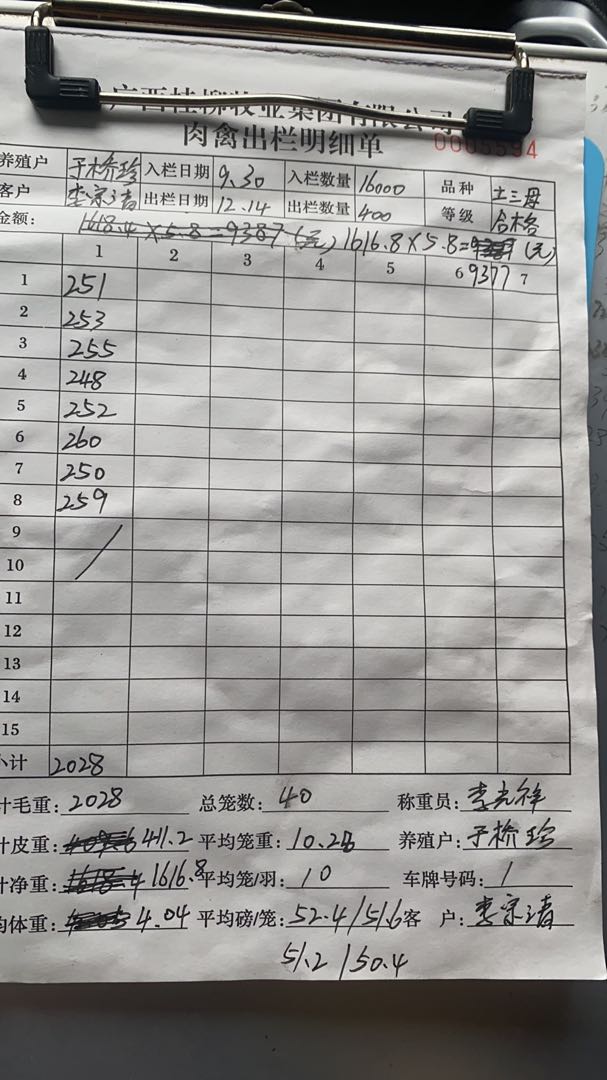 广西桂柳牧业集团有限公司
肉禽出栏明细单
0005594
养殖户 于桥珍 入栏日期 9.30 入栏数量 16000 品种 土三母
客户 李宗清 出栏日期 12.14 出栏数量 400 等级 合格
金额: 1618.4×5.8=9387(元) 1616.8×5.8= (元)
9377
1 2 3 4 5 6 7
1 251
2 253
3 255
4 248
5 252
6 260
7 250
8 259
9
10
11
12
13
14
15
小计 2028
计毛重: 2028 总笼数: 40 称重员: 李光祥
计皮重: 411.2 平均笼重: 10.28 养殖户: 于桥珍
计净重: 1618.4 1616.8 平均笼/羽: 10 车牌号码: /
均体重: 4.04 平均磅/笼: 52.4/51.6 客 户: 李宗清
51.2/50.4